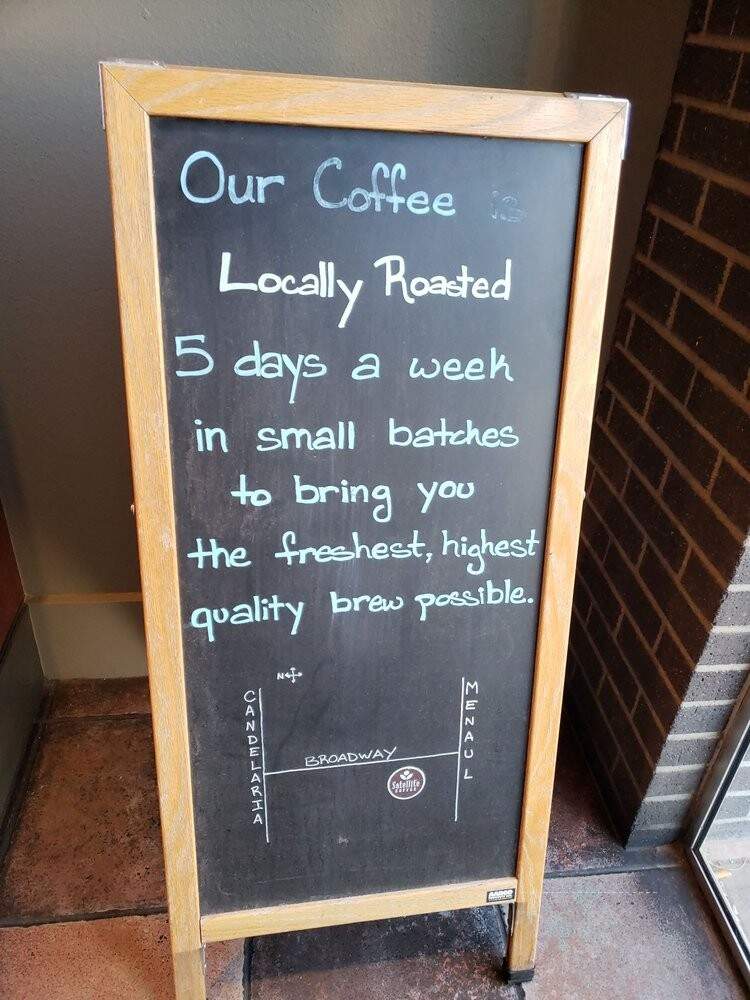 Our Coffee is
Locally Roasted
5 days a week
in small batches
to bring you
the freshest, highest
quality brew possible.
N
CANDELARIA
BROADWAY
MENAUL
Satellite
COFFEE
AARCO